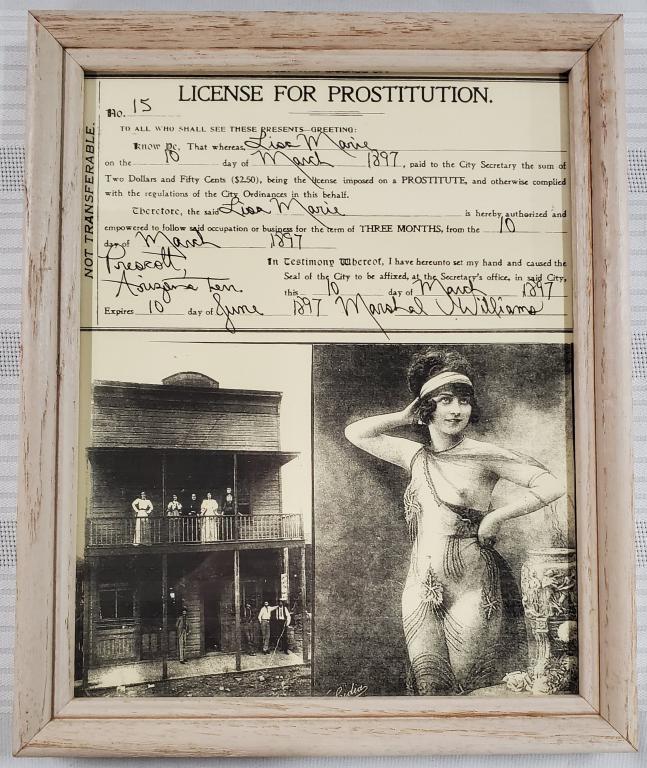 LICENSE FOR PROSTITUTION.
No. 15
TO ALL WHO SHALL SEE THESE PRESENTS—GREETING:
Know Ye, That whereas, Lisa Marie
on the 10 day of March 1897, paid to the City Secretary the sum of
Two Dollars and Fifty Cents ($2.50), being the license imposed on a PROSTITUTE, and otherwise complied
with the regulations of the City Ordinances in this behalf.
Therefore, the said Lisa Marie is hereby authorized and
empowered to follow said occupation or business for the term of THREE MONTHS, from the 10
day of March 1897
Prescott,
Arizona Terr
In Testimony Whereof, I have hereunto set my hand and caused the
Seal of the City to be affixed, at the Secretary's office, in said City,
this 10 day of March 1897
Expires 10 day of June 1897 Marshal Williams
NOT TRANSFERABLE.